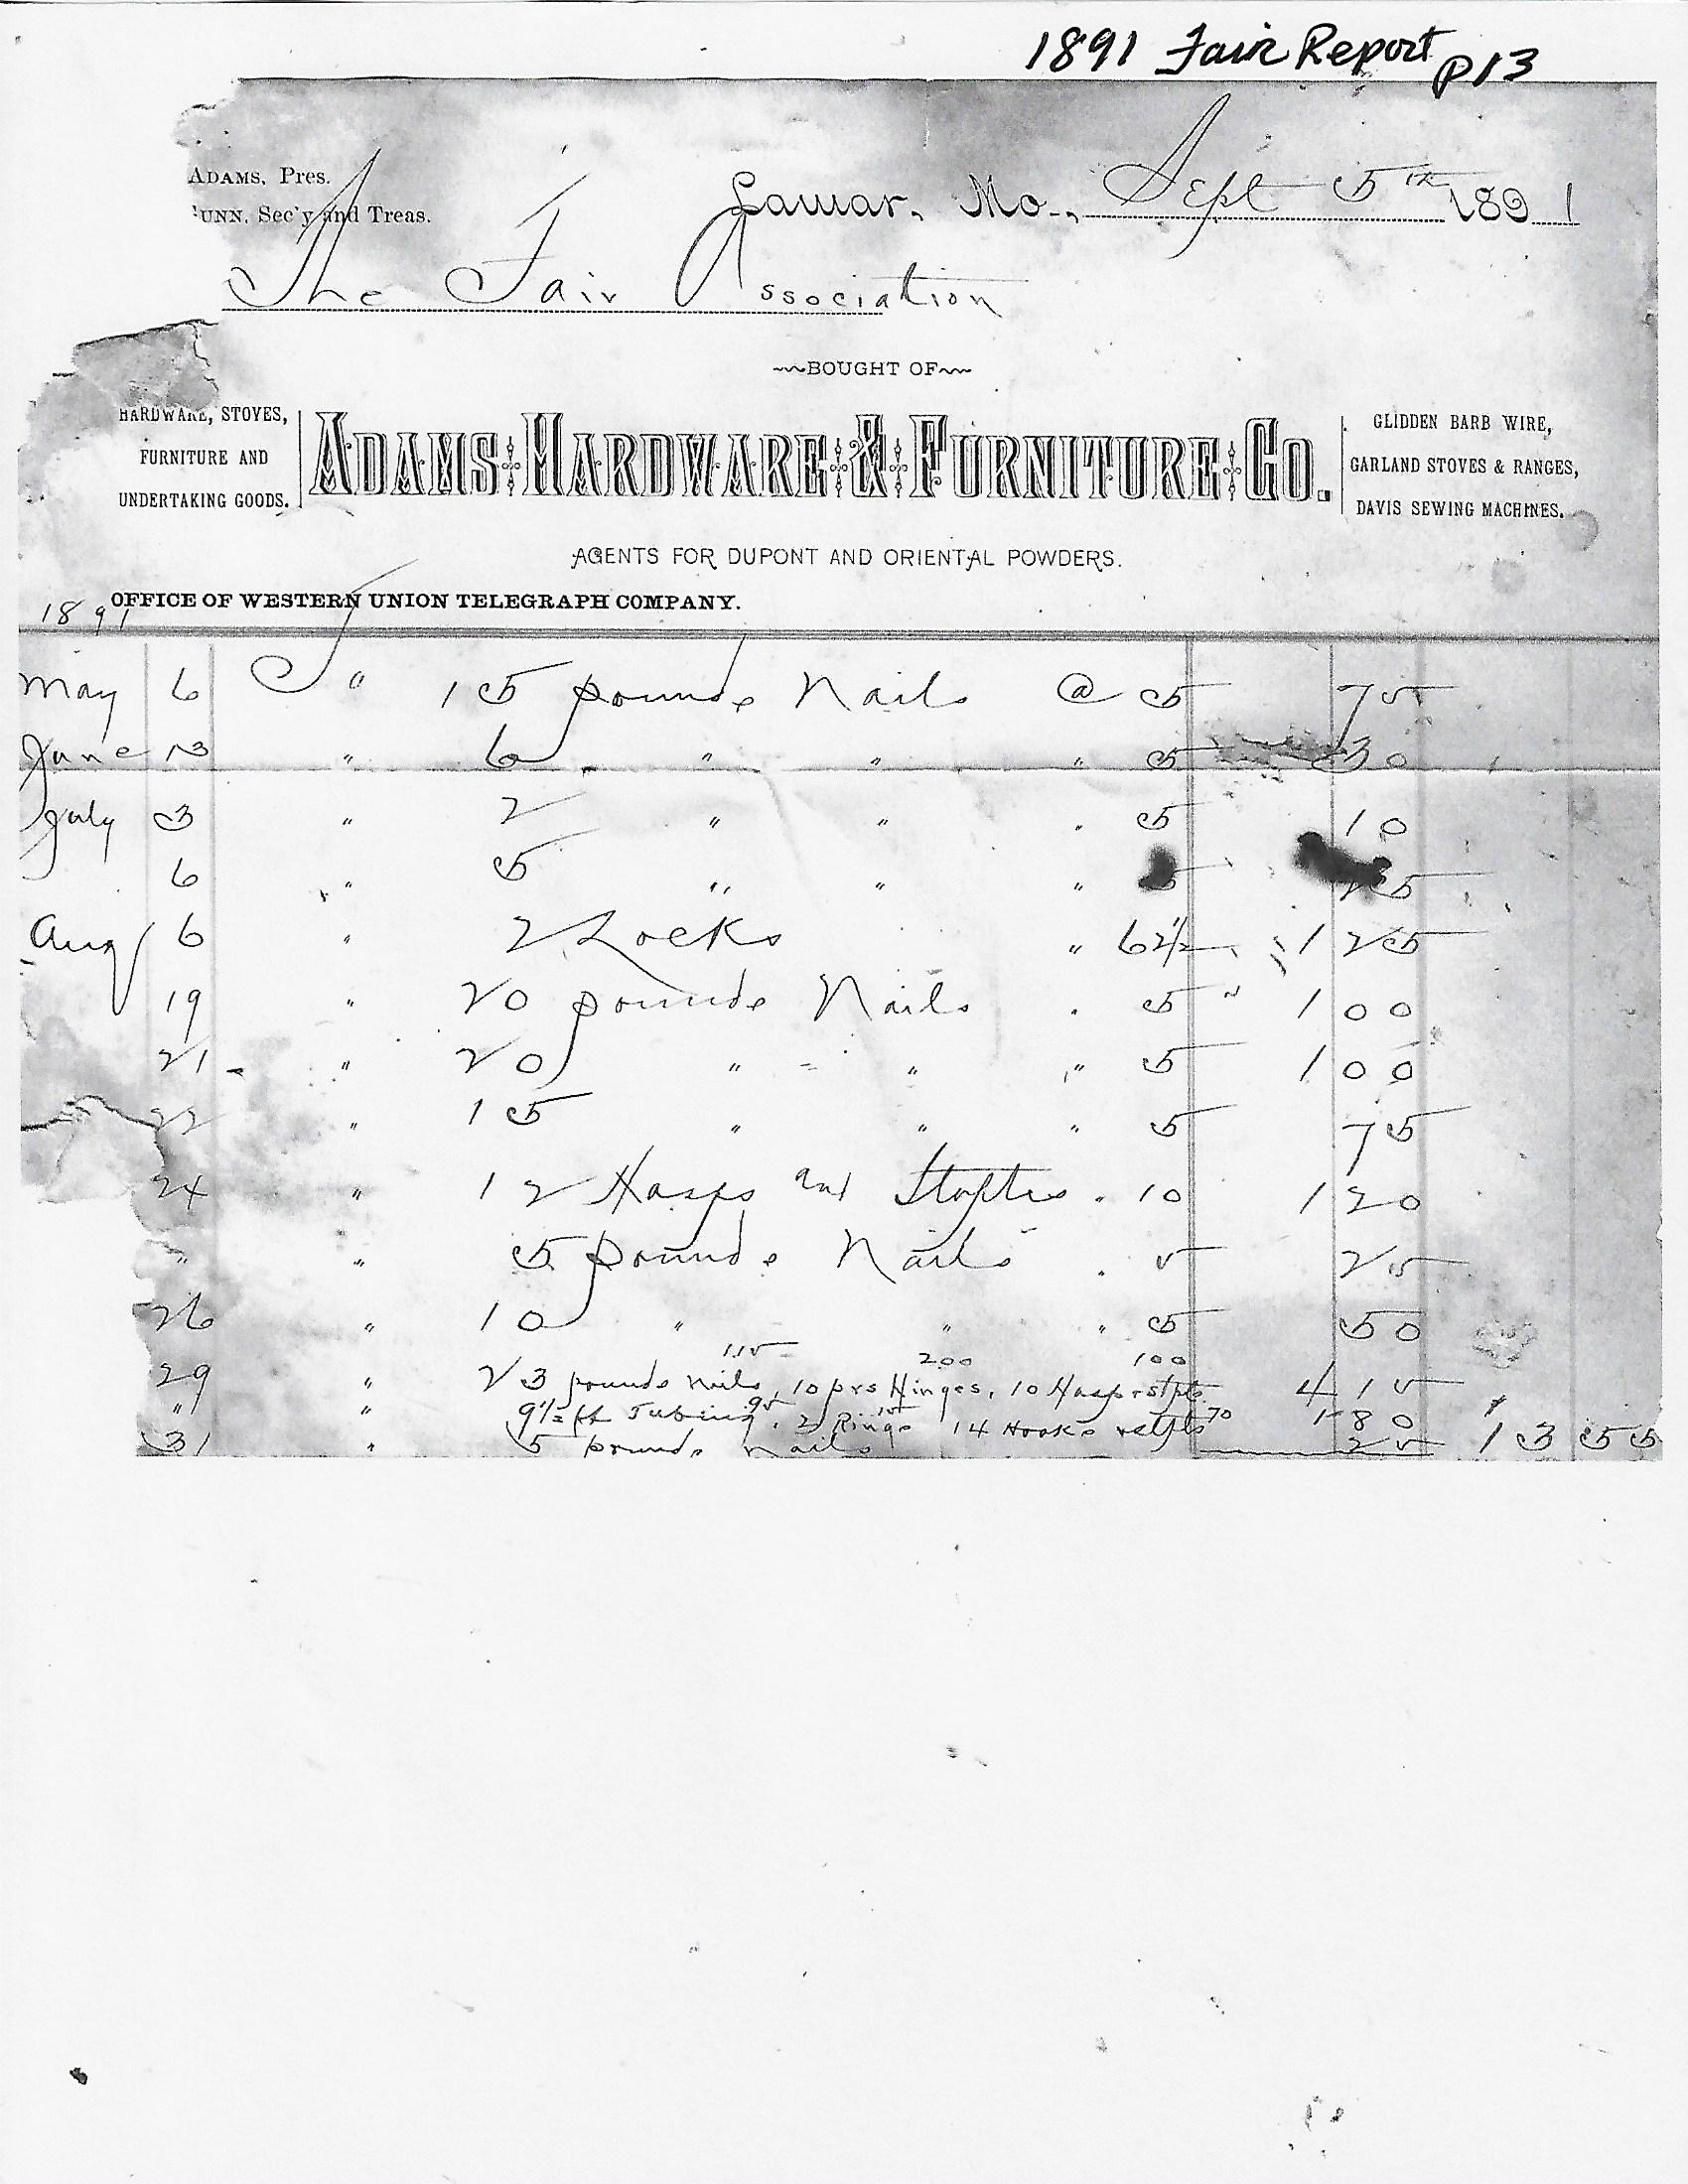 1891 Fair Report p13
ADAMS, Pres.
UNN, Sec'y and Treas.
Lamar, Mo., Sept 5th 1891
The Fair Association
BOUGHT OF
HARDWARE, STOVES,
FURNITURE AND
UNDERTAKING GOODS.
ADAMS HARDWARE & FURNITURE CO.
GLIDDEN BARB WIRE,
GARLAND STOVES & RANGES,
DAVIS SEWING MACHINES.
AGENTS FOR DUPONT AND ORIENTAL POWDERS.
OFFICE OF WESTERN UNION TELEGRAPH COMPANY.
1891
May 6 To " 15 pounds Nails @ 5 75
June 13 " 6 " " " 5 30
July 3 " 2 " " " 5 10
6 " 5 " " " 5 25
Aug 6 " 2 Locks " 62½ 1 25
19 " 20 pounds Nails " 5 1 00
21 " 20 " " " 5 1 00
22 " 15 " " " 5 75
24 " 12 Hasps and Staples " 10 1 20
" " 5 pounds Nails " 5 25
26 " 10 " " " 5 50
115 200 100
29 " 23 pounds nails, 10 prs Hinges, 10 Hasp + stpls 4 15
" " 9½ ft Tubing 95, 2 Rings 15 14 Hooks 70 1 80
31 " 5 pounds nails 25 13 55